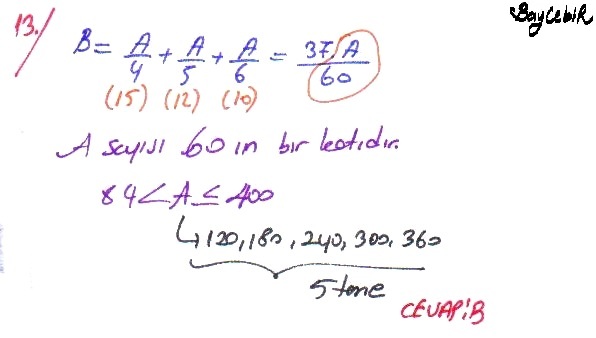 BayCebiR
13.)
B = A/4 + A/5 + A/6 = 37.A/60
(15) (12) (10)
A sayısı 60 ın bir katıdır.
84 < A ≤ 400
↳ 120, 180, 240, 300, 360
5 tane
CEVAP: B